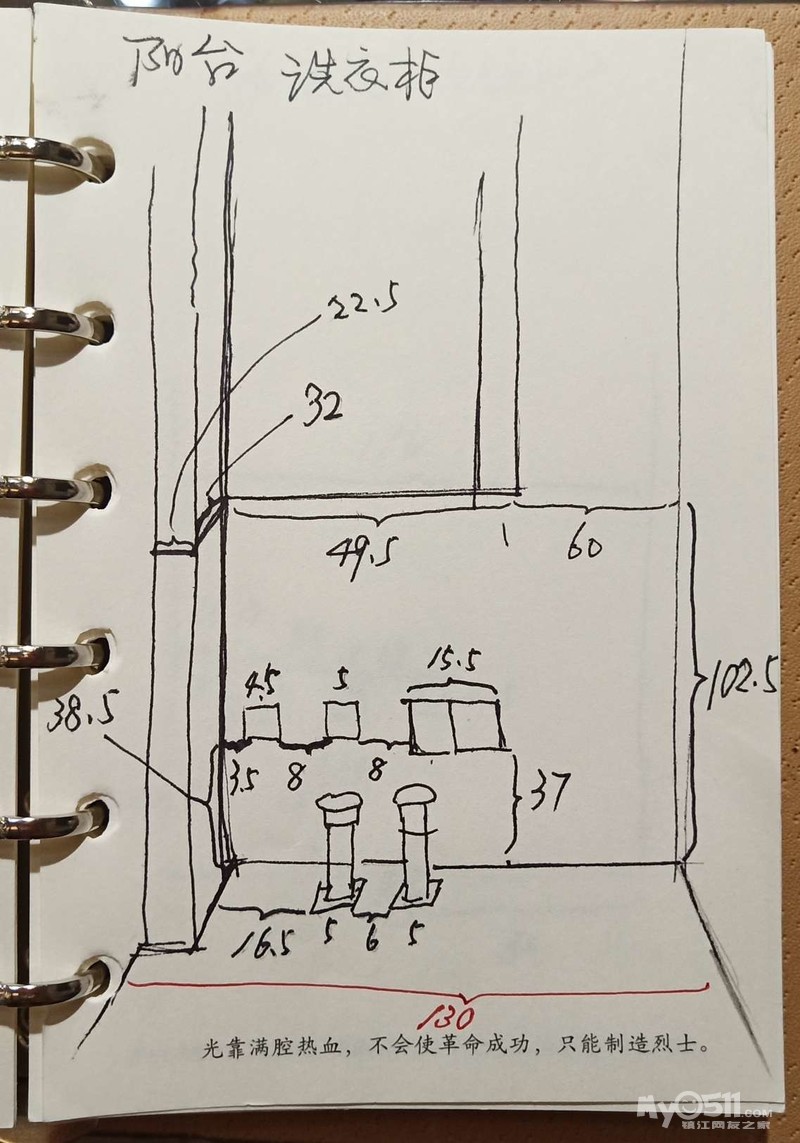 阳台 洗衣柜
22.5
32
49.5 1 60
4.5 5 15.5
102.5
38.5
3.5 8 8
37
16.5 5 6 5
130
光靠满腔热血，不会使革命成功，只能制造烈士。
My0511.com
镇江网友之家